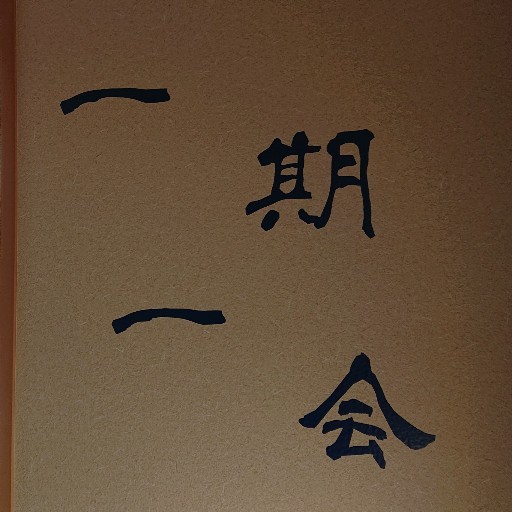 一
期
一
会